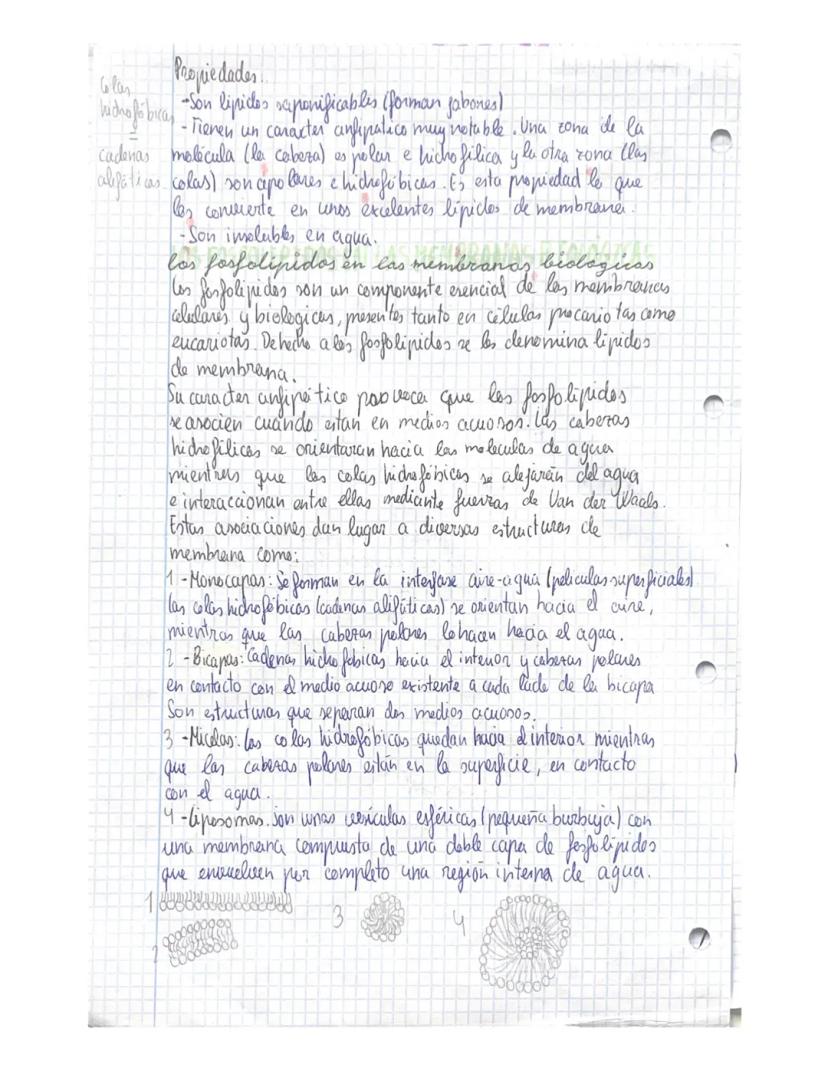 Propiedades:
Colas
hidrofóbicas
=
cadenas
alifáticas
-Son lípidos saponificables (forman jabones)
-Tienen un caracter anfipático muy notable. Una zona de la
molécula (la cabeza) es polar e hidrofílica y la otra zona (las
colas) son apolares e hidrofóbicas. Es esta propiedad la que
los convierte en unos excelentes lípidos de membrana.
-Son insolubles en agua.
los fosfolípidos en las membranas biológicas
Los fosfolípidos son un componente esencial de las membranas
celulares y biologicas, presentes tanto en células procariotas como
eucariotas. De hecho a los fosfolípidos se les denomina lípidos
de membrana.
Su caracter anfipático provoca que los fosfolípidos
se asocien cuando estan en medios acuosos. Las cabezas
hidrofílicas se orientaran hacia las moleculas de agua
mientras que las colas hidrofóbicas se alejarán del agua
e interaccionan entre ellas mediante fuerzas de Van der Waals.
Estas asociaciones dan lugar a diversas estructuras de
membrana como:
1 -Monocapas: Se forman en la interfase aire-agua (películas superficiales)
las colas hidrofóbicas (cadenas alifáticas) se orientan hacia el aire,
mientras que las cabezas polares lo hacen hacia el agua.
2 -Bicapas: Cadenas hidrofobicas hacia el interior y cabezas polares
en contacto con el medio acuoso existente a cada lado de la bicapa
Son estructuras que separan dos medios acuosos.
3 -Micelas: las colas hidrofóbicas quedan hacia el interior mientras
que las cabezas polares están en la superficie, en contacto
con el agua.
4 -Liposomas. Son unas vesículas esféricas (pequeña burbuja) con
una membrana compuesta de una doble capa de fosfolípidos
que envuelven por completo una región interna de agua.
1
2
3
4